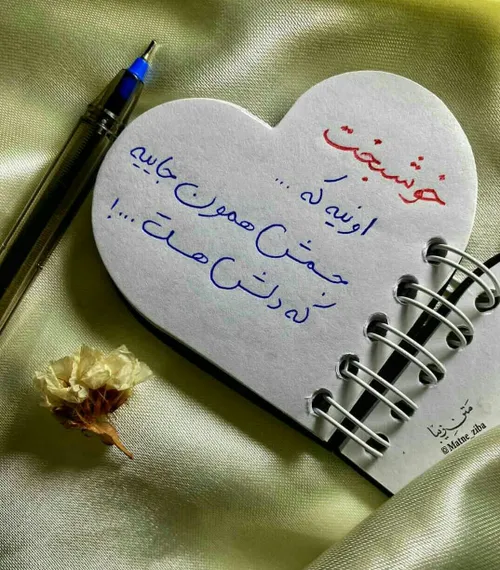 خوشبخت
اونیه که ...
جسمش همون جاییه
که دلش هست ...!
متن زیبا
©Matne_ziba